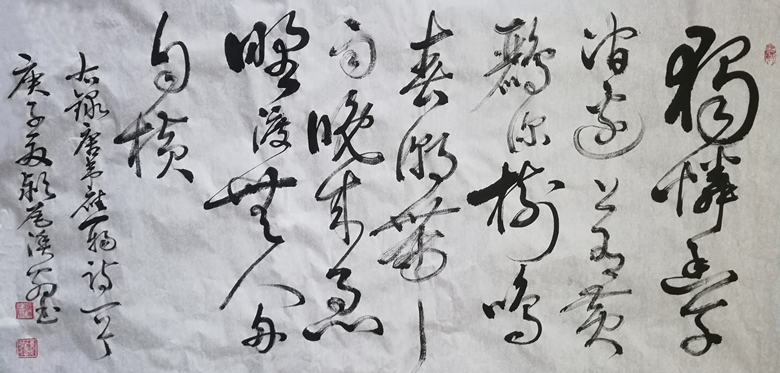 獨憐幽草
澗邊上有黄
鸝深樹鳴
春潮帶
雨晚來急
野渡無人舟
自橫
右錄唐韋應物詩一首
庚子夏